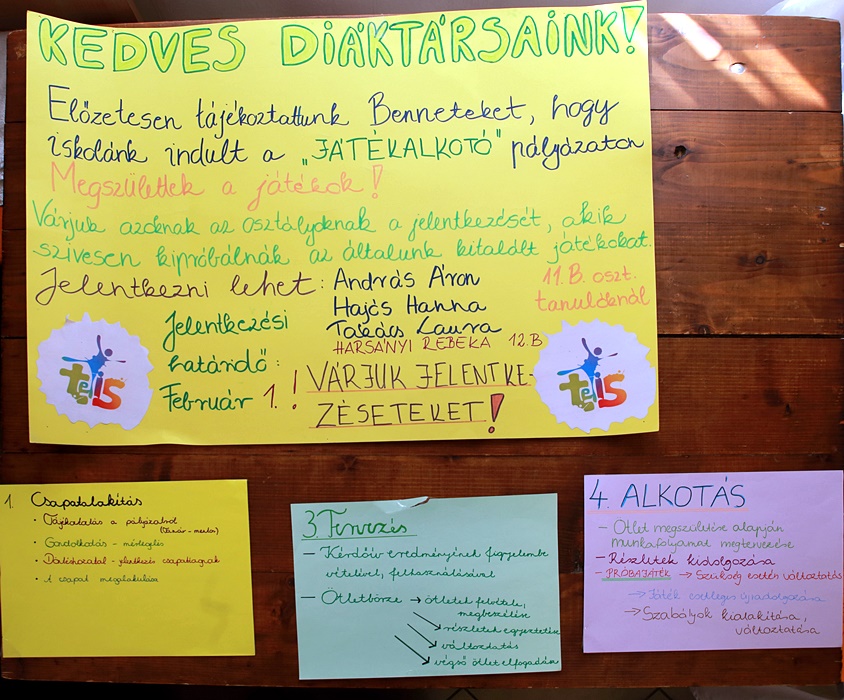 KEDVES DIÁKTÁRSAINK!
Előzetesen tájékoztattunk Benneteket, hogy
iskolánk indult a „JÁTÉKALKOTÓ" pályázaton
Megszülettek a játékok!
Várjuk azoknak az osztályoknak a jelentkezését, akik
szívesen kipróbálnák az általunk kitalált játékokat.
Jelentkezni lehet: András Áron
Hajós Hanna
Takács Laura
HARSÁNYI REBEKA 12.B
11.B. oszt.
tanulóknál
Jelentkezési
határidő:
Február 1.!
VÁRJUK JELENTKE-
ZÉSETEKET!
teis
teis
1. Csapatalakítás
• Tájékoztatás a pályázatról
(Tanár-mentor)
• Gondolkodás - mérlegelés
• Döntéshozatal - jelentkezés csapattagnak
• A csapat megalakulása
3. Tervezés
- Kérdőív eredményének figyelembe
vételével, felhasználásával
- Ötletbörze → ötletek felvétele,
megbeszélése
részletek egyeztetése
változtatás
végső ötlet elfogadása
4. ALKOTÁS
- Ötlet megszületése alapján
munkafolyamat megtervezése
- Részletek kidolgozása
- PRÓBAJÁTÉK → Szükség esetén változtatás
→ Játék esetleges újragondolása
→ Szabályok kialakítása,
változtatása